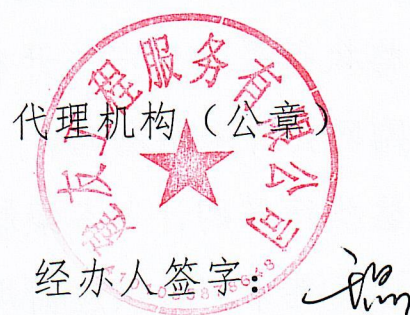 代理机构（公章）
建友工程服务有限公司
经办人签字：